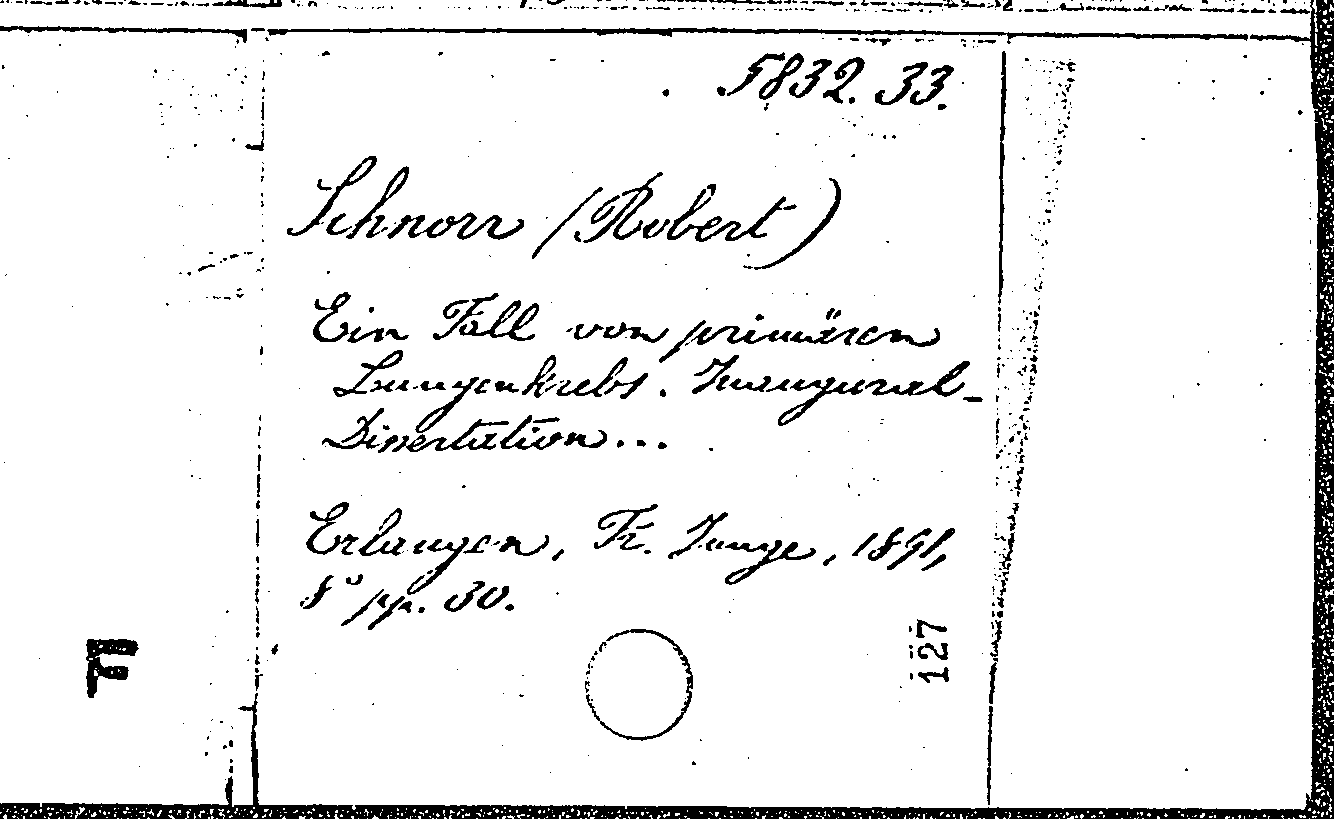 5832. 33.
Schnorr (Robert)
Ein Fall von primären
Lungenkrebs. Inaugural-
Dissertation...
Erlangen, Fr. Junge, 1891,
8° pp. 30.
127
F